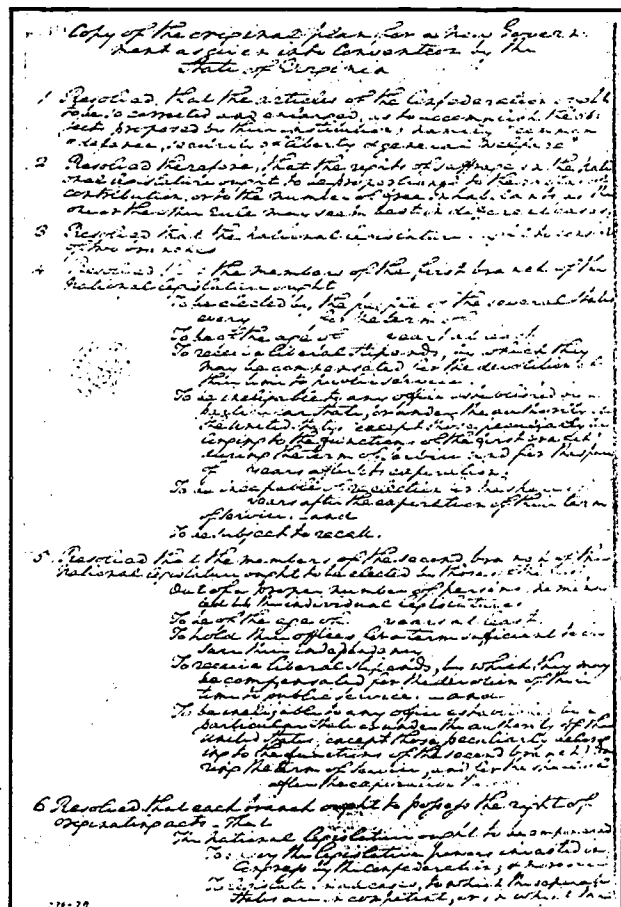 Copy of the original plan for a new Govern
ment as given into Convention by the
State of Virginia
1 Resolved that the articles of the Confederation ought
to be so corrected and enlarged, as to accomplish the ob
jects proposed by their institution; namely "common
defence, security of liberty & general welfare"
2 Resolved therefore, that the rights of suffrage in the nati
onal legislature ought to be proportioned to the
contribution, or to the number of free inhabitants as the
one or the other Rule may seem best in different cases.
3 Resolved that the national legislature ought to consist
of two branches
4 Resolved that the members of the first branch of the
national legislature ought
To be elected by the people of the several states
every for the term of
To be of the age of years at least.
To receive liberal stipends, by which they
may be compensated for the devotion of
their time to public service.
To be ineligible to any office established by a
particular state, or under the authority of
the United States except those peculiarly be
longing to the functions of the first branch
during the term of service and for the space
of years after its expiration;
To be incapable of reelection for the space of
years after the expiration of their term
of service. and
To be subject to recall.
5 Resolved that the members of the second branch of the
national legislature ought to be elected by those of the first
Out of a proper number of persons nomina
ted by the individual legislatures
To be of the age of years at least.
To hold their offices for a term sufficient to en
sure their independency
To receive liberal stipends, by which they may
be compensated for the devotion of their
time to public service. and
To be ineligible to any office established by a
particular state or under the authority of the
united states, except those peculiarly belong
ing to the functions of the second branch; du
ring the term of service, and for the space of
after the expiration
6 Resolved that each branch ought to possess the right of
originating acts - that
The national legislature ought to be impowered
To enjoy the legislative powers invested in
Congress by the confederation, & moreover
To legislate in all cases, to which the separate
states are incompetent, or in which the